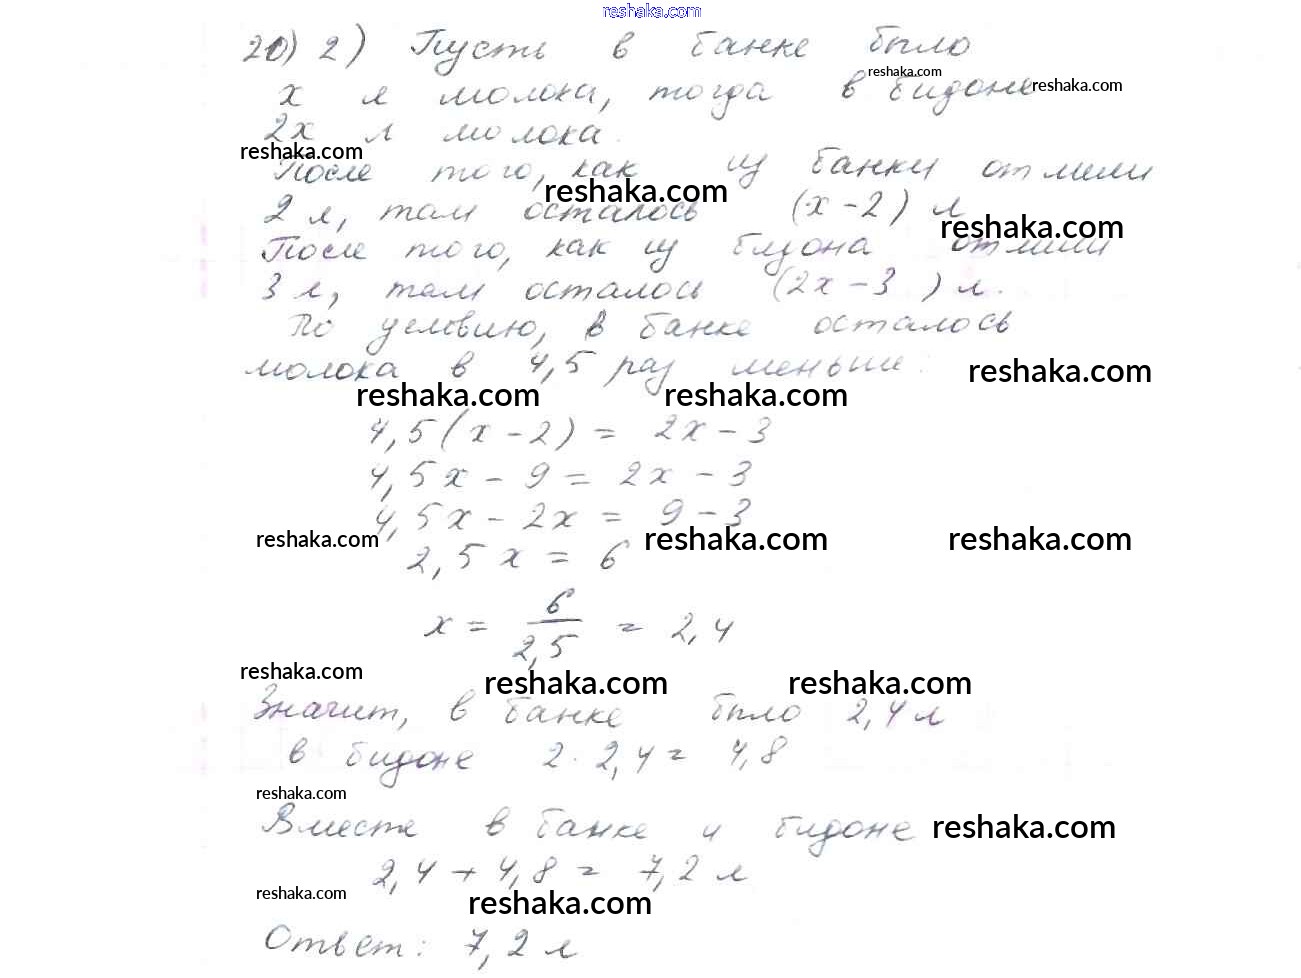 reshaka.com
20) 2) Пусть в банке было
reshaka.com
х л молока, тогда в бидоне reshaka.com
2х л молока.
reshaka.com
После того, как из банки отлили
reshaka.com
2 л, там осталось (х - 2) л
reshaka.com
После того, как из бидона отлили
3 л, там осталось (2х - 3) л.
По условию, в банке осталось
молока в 4,5 раз меньше:
reshaka.com
reshaka.com reshaka.com
4,5(х - 2) = 2х - 3
4,5х - 9 = 2х - 3
4,5х - 2х = 9 - 3
reshaka.com reshaka.com reshaka.com
2,5х = 6
х = 6/2,5 = 2,4
reshaka.com
reshaka.com reshaka.com
Значит, в банке было 2,4 л
в бидоне 2 · 2,4 = 4,8
reshaka.com
Вместе в банке и бидоне reshaka.com
2,4 + 4,8 = 7,2 л
reshaka.com
reshaka.com
Ответ: 7,2 л